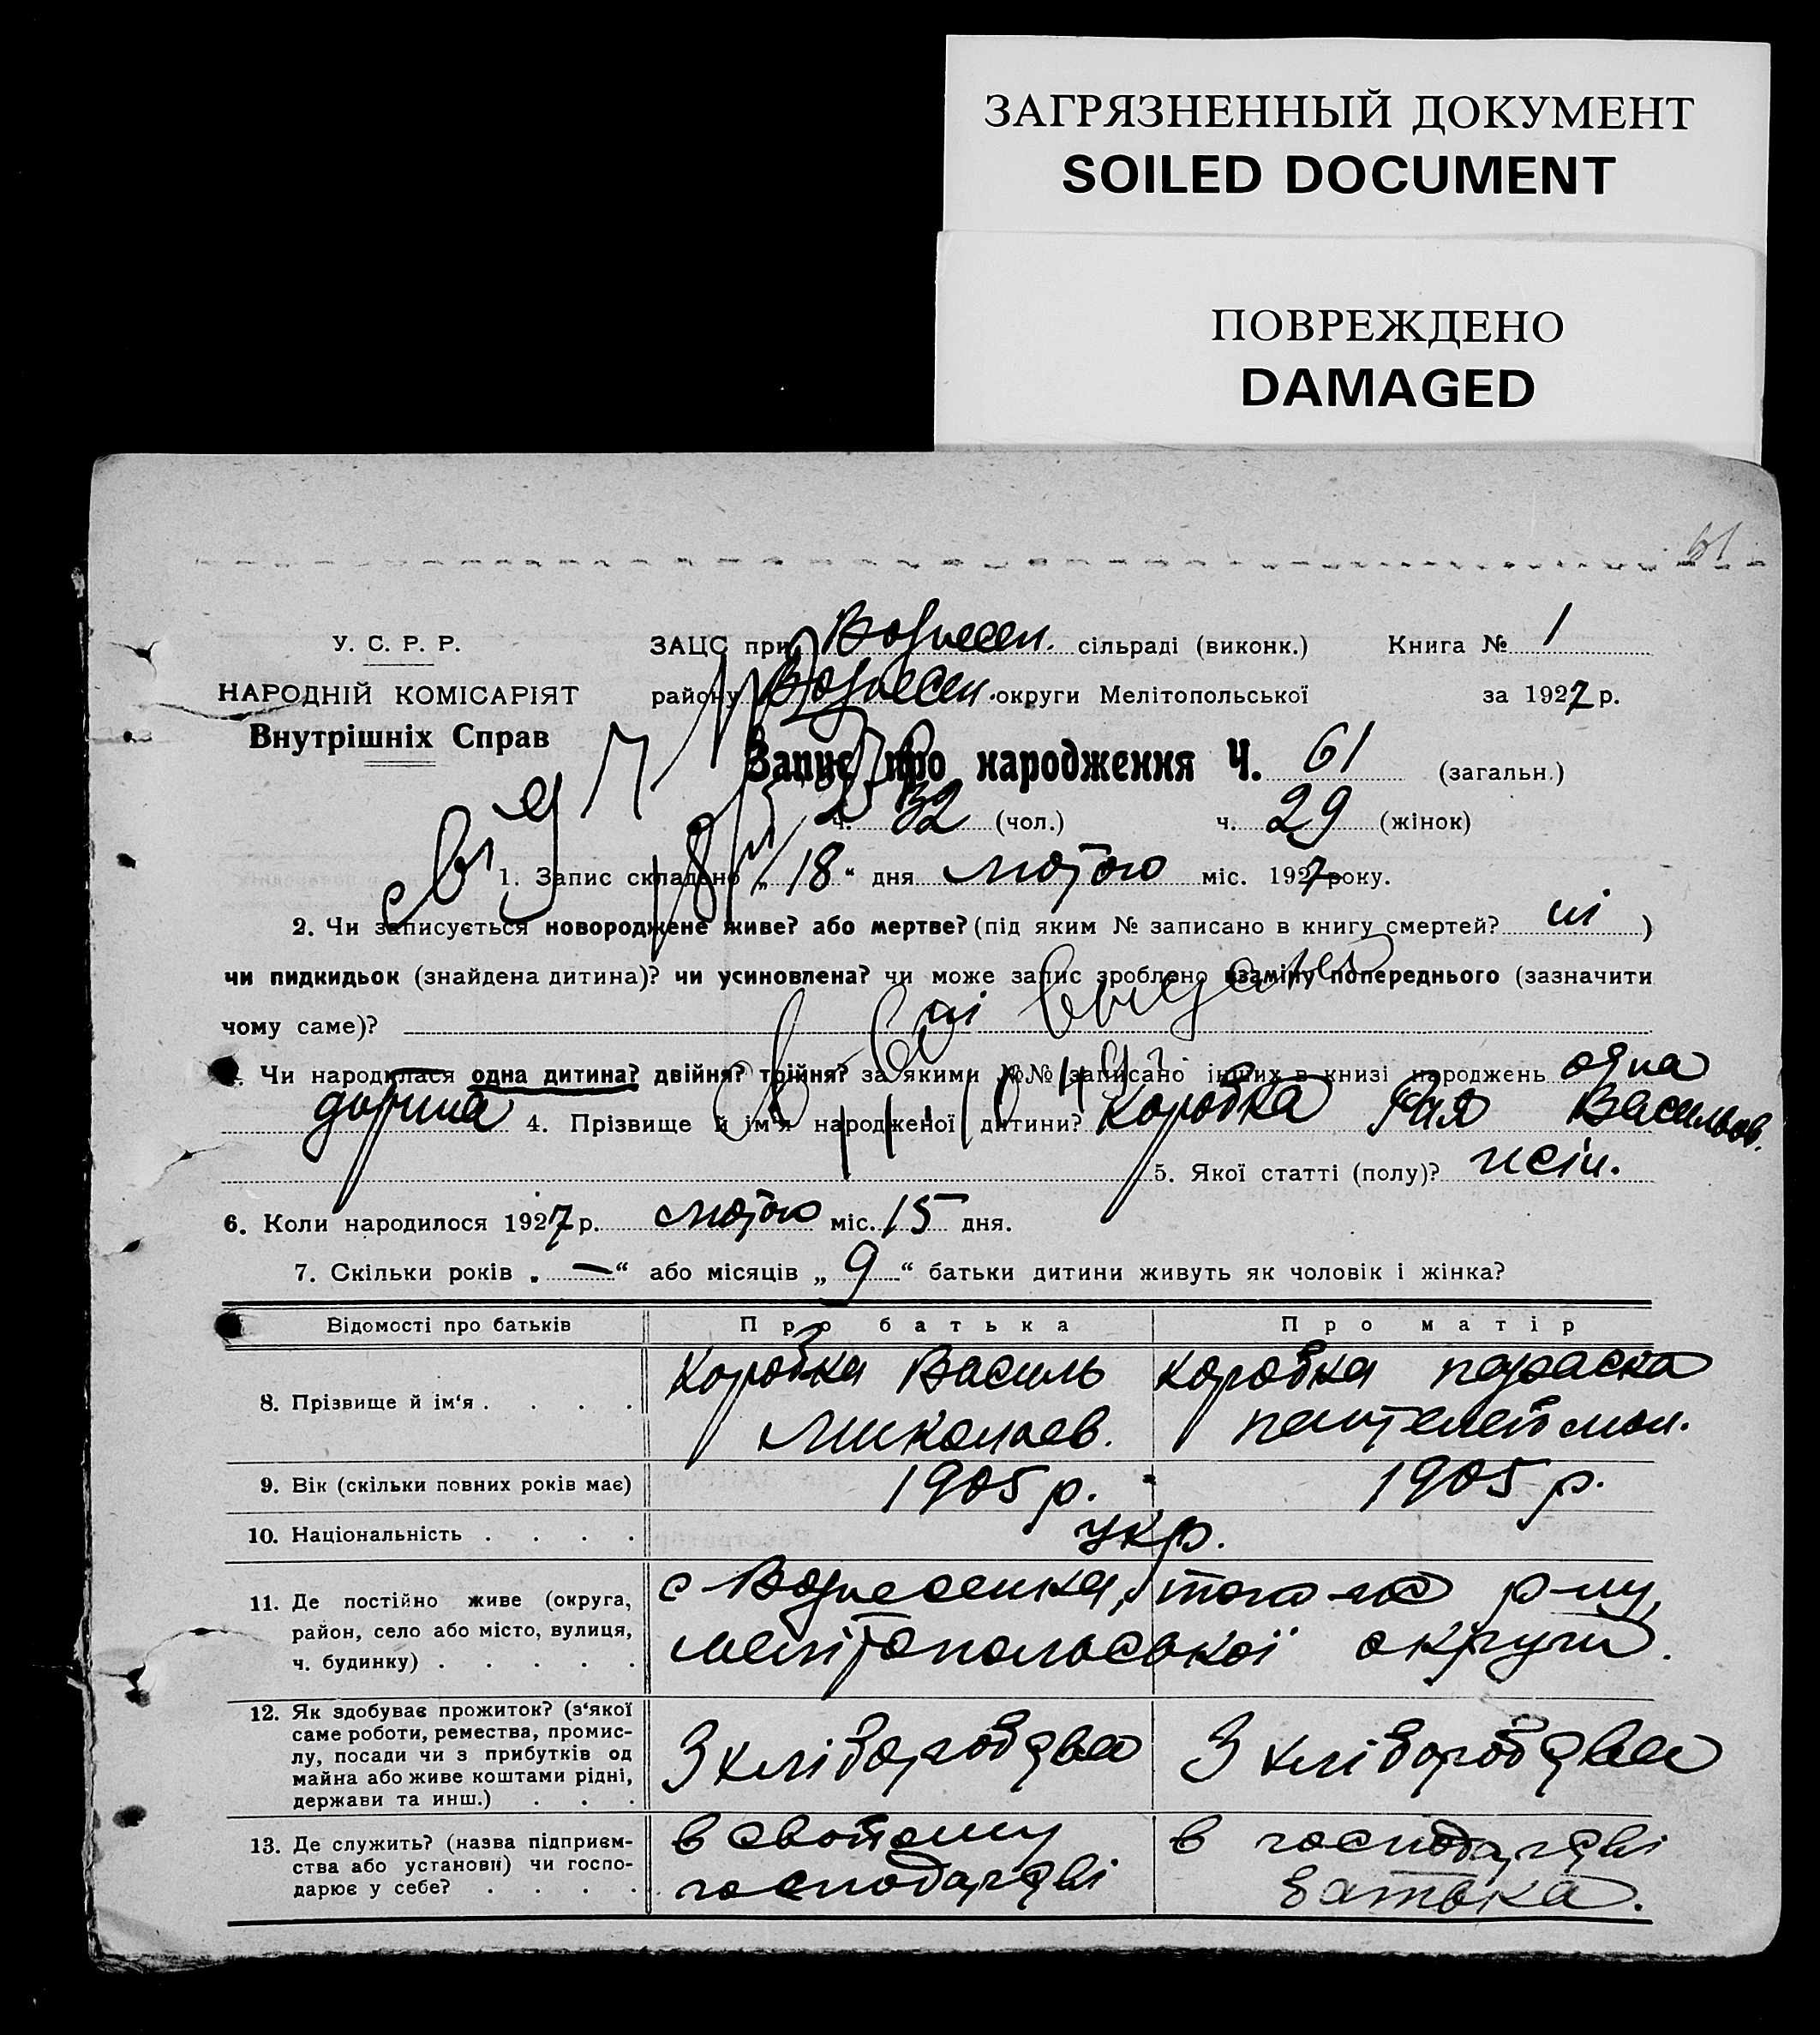 ЗАГРЯЗНЕННЫЙ ДОКУМЕНТ
SOILED DOCUMENT
ПОВРЕЖДЕНО
DAMAGED
61
У. С. Р. Р.
ЗАЦС при Вознесен. сільраді (виконк.) Книга № 1
НАРОДНІЙ КОМІСАРІЯТ
району Вознесен. округи Мелітопольської за 1927 р.
Внутрішніх Справ
Запис про народження Ч. 61 (загальн.)
ч. 32 (чол.) ч. 29 (жінок)
1. Запис складено „18“ дня лютого міс. 1927 року.
2. Чи записується новороджене живе? або мертве? (під яким № записано в книгу смертей? ні )
чи пидкидьок (знайдена дитина)? чи усиновлена? чи може запис зроблено взаміну попереднього (зазначити
чому саме)? ні
Чи народилася одна дитина? двійня? трійня? за якими №№ записано інших в книзі народжень одна
дитина 4. Прізвище й ім'я народженої дитини? Коробка Рая Васильов.
5. Якої статті (полу)? жін.
6. Коли народилося 1927 р. лютого міс. 15 дня.
7. Скільки років „—“ або місяців „9“ батьки дитини живуть як чоловік і жінка?
Відомості про батьків Про батька Про матір
8. Прізвище й ім'я . . . . Коробка Василь Коробка параска
Миколаев. пантелеймон.
9. Вік (скільки повних років має) 1905 р. 1905 р.
10. Національність . . . . укр.
11. Де постійно живе (округа, с Вознесенка, того же р-ну,
район, село або місто, вулиця,
ч. будинку) . . . . . мелітопольської округи.
12. Як здобуває прожиток? (з'якої
саме роботи, ремества, промис-
лу, посади чи з прибутків од З хліборобства З хліборобства
майна або живе коштами рідні,
держави та инш.) . . .
13. Де служить? (назва підприєм- в своєому в господарстві
ства або установи) чи госпо-
дарює у себе? . . . . господарстві батька.